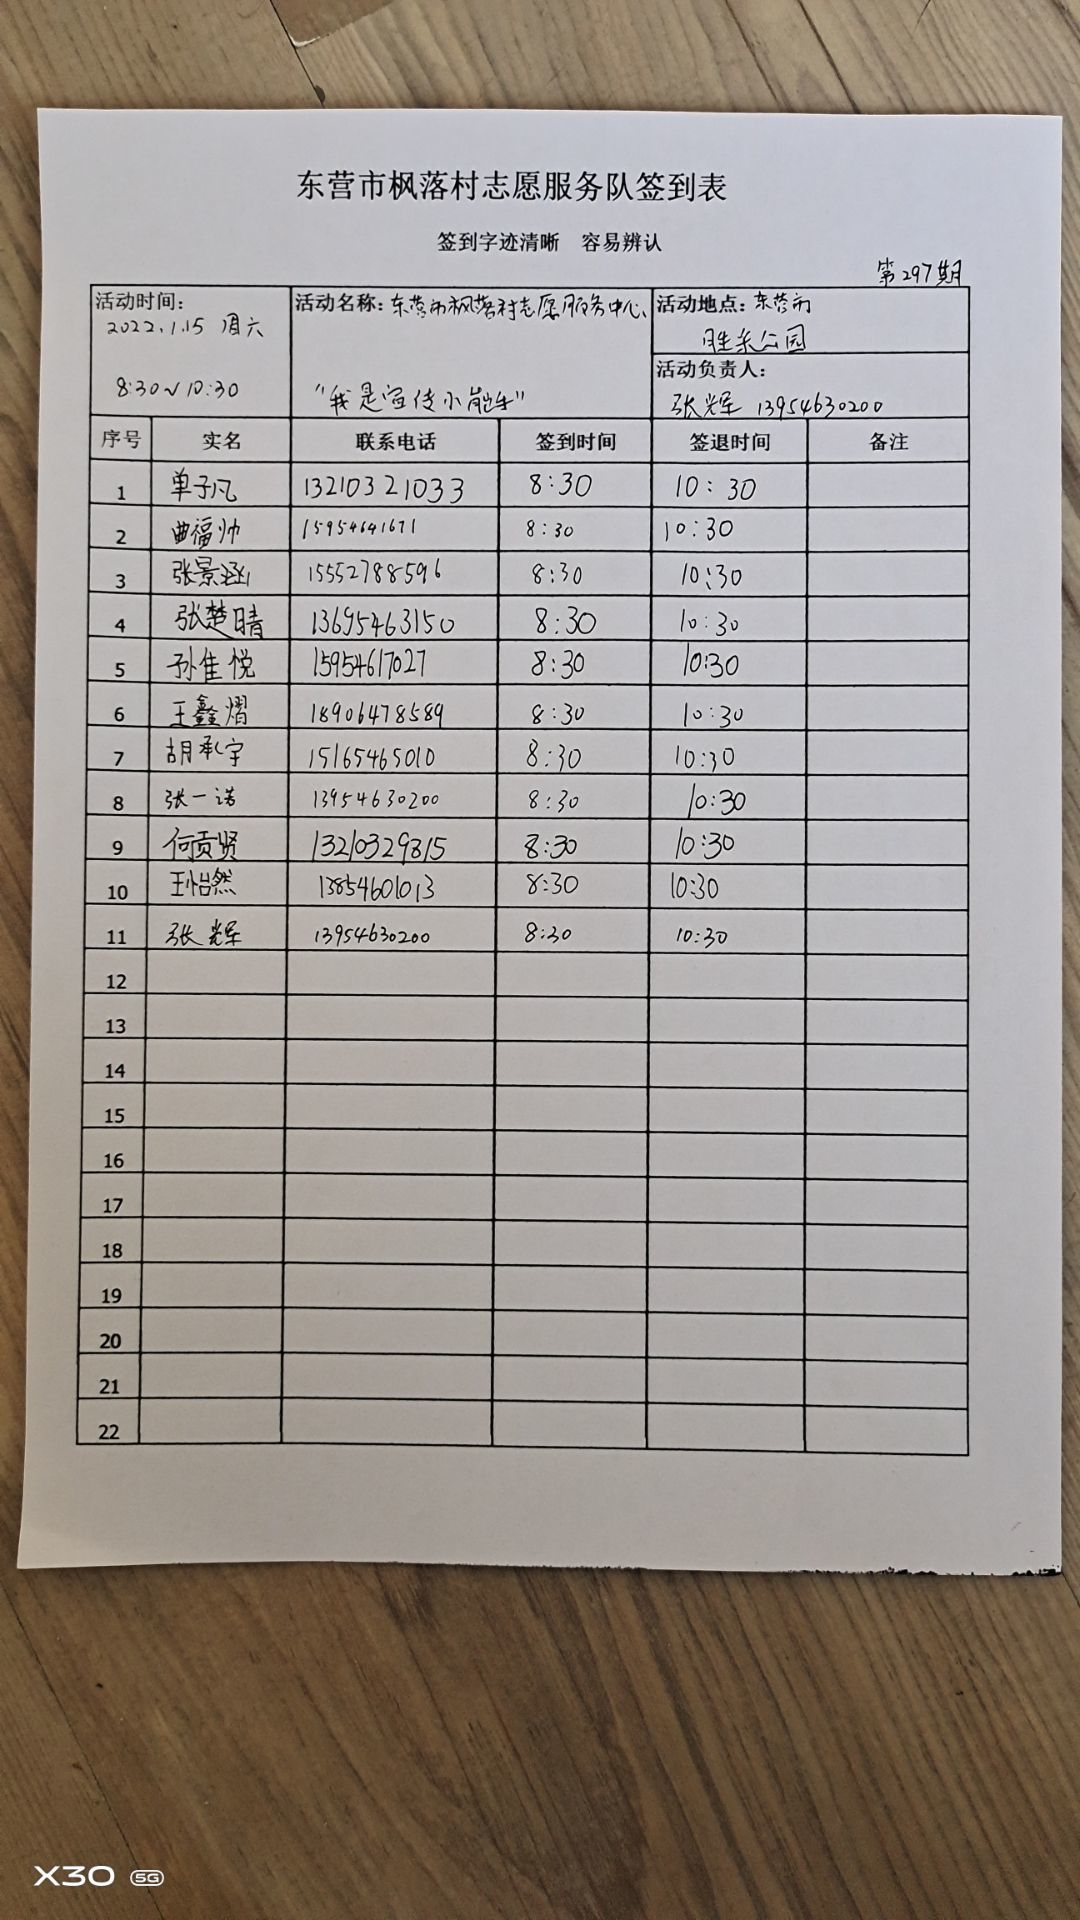 东营市枫落村志愿服务队签到表
签到字迹清晰 容易辨认
第297期
活动时间: 2022.1.15 周六
8:30~10:30
活动名称: 东营市枫落村志愿服务中心、
"我是宣传小能手"
活动地点: 东营市
胜采公园
活动负责人:
张辉 13954630200
序号 实名 联系电话 签到时间 签退时间 备注
1 单子凡 13210321033 8:30 10:30
2 曲福帅 15954641671 8:30 10:30
3 张景涵 15552788596 8:30 10:30
4 张楚晴 13695463150 8:30 10:30
5 孙佳悦 15954617027 8:30 10:30
6 王鑫熠 18906478589 8:30 10:30
7 胡承宇 15165465010 8:30 10:30
8 张一诺 13954630200 8:30 10:30
9 何贡贤 13210329815 8:30 10:30
10 王怡然 13854601013 8:30 10:30
11 张辉 13954630200 8:30 10:30
12
13
14
15
16
17
18
19
20
21
22
X30 5G